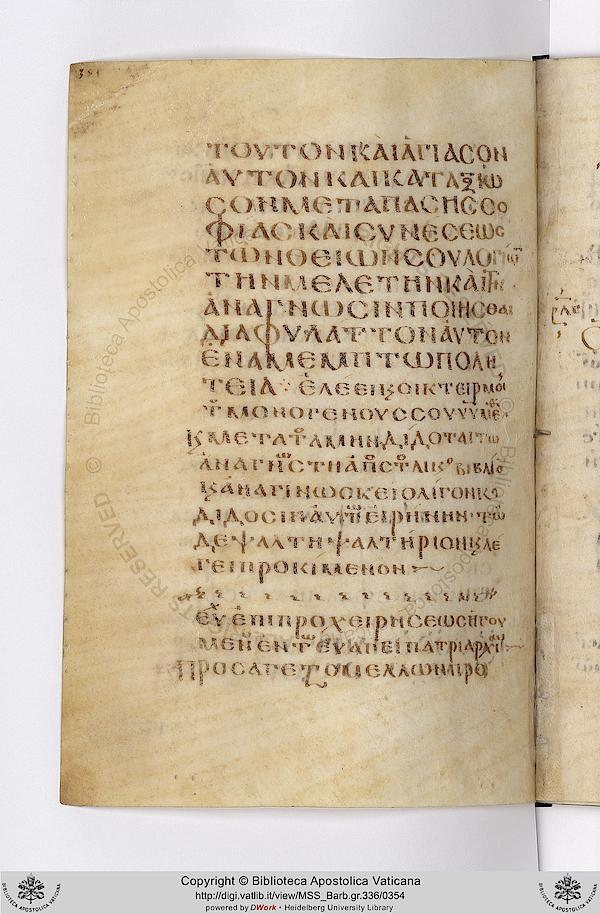 ΤΟΥΤΟΝ ΚΑΙ ΑΓΙΑΣΟΝ
ΑΥΤΟΝ ΚΑΙ ΚΑΤΑΞΙΩ
ΣΟΝ ΜΕΤΑ ΠΑΣΗΣ ΣΟ
ΦΙΑΣ ΚΑΙ ΣΥΝΕΣΕΩΣ
ΤΩΝ ΘΕΙΩΝ ΣΟΥ ΛΟΓΙ
ΤΗΝ ΜΕΛΕΤΗΝ ΚΑΙ ΤΗΝ
ΑΝΑΓΝΩΣΙΝ ΠΟΙΗΣΘΑΙ
ΔΙΑΦΥΛΑΤΤΟΝ ΑΥΤΟΝ
ΕΝ ΑΜΕΜΠΤΩ ΠΟΛΗ
ΤΕΙΑ ΕΛΕΕΙ Κ ΟΙΚΤΕΙΡΜΟΙ
ΜΟΝΟΓΕΝΟΥΣ ΣΟΥ ΥΥ ΜΕ
Κ ΜΕΤΑ ΤΟ ΑΜΗΝ ΔΙΔΟΤΑΙ ΤΩ
ΑΝΑΓΝΩΣΤΗ ΑΠΟΣΤΟΛΙΚΟ ΒΙΒΛΙΟ
Κ ΑΝΑΓΙΝΩΣΚΕΙ ΟΛΙΓΟΝ Κ
ΔΙΔΟΣΙΝ ΑΥΤΩ ΕΙΡΗΝΗΝ ΤΩ
ΔΕ ΨΑΛΤΗ ΨΑΛΤΗΡΙΟΝ Κ ΛΕ
ΓΕΙ ΠΡΟΚΙΜΕΝΟΝ
ΕΥΧ ΕΠΙ ΠΡΟΧΕΙΡΗΣΕΩΣ ΗΓΟΥ
ΜΕΝ ΕΝ ΤΩ ΕΥΑΓΕΙ ΠΑΤΡΙΑΡΧΙ
ΠΡΟΣΑΓΕΤ Ο ΜΕΛΛΩΝ ΠΡΟ
Copyright © Biblioteca Apostolica Vaticana
http://digi.vatlib.it/view/MSS_Barb.gr.336/0354
powered by DWork - Heidelberg University Library